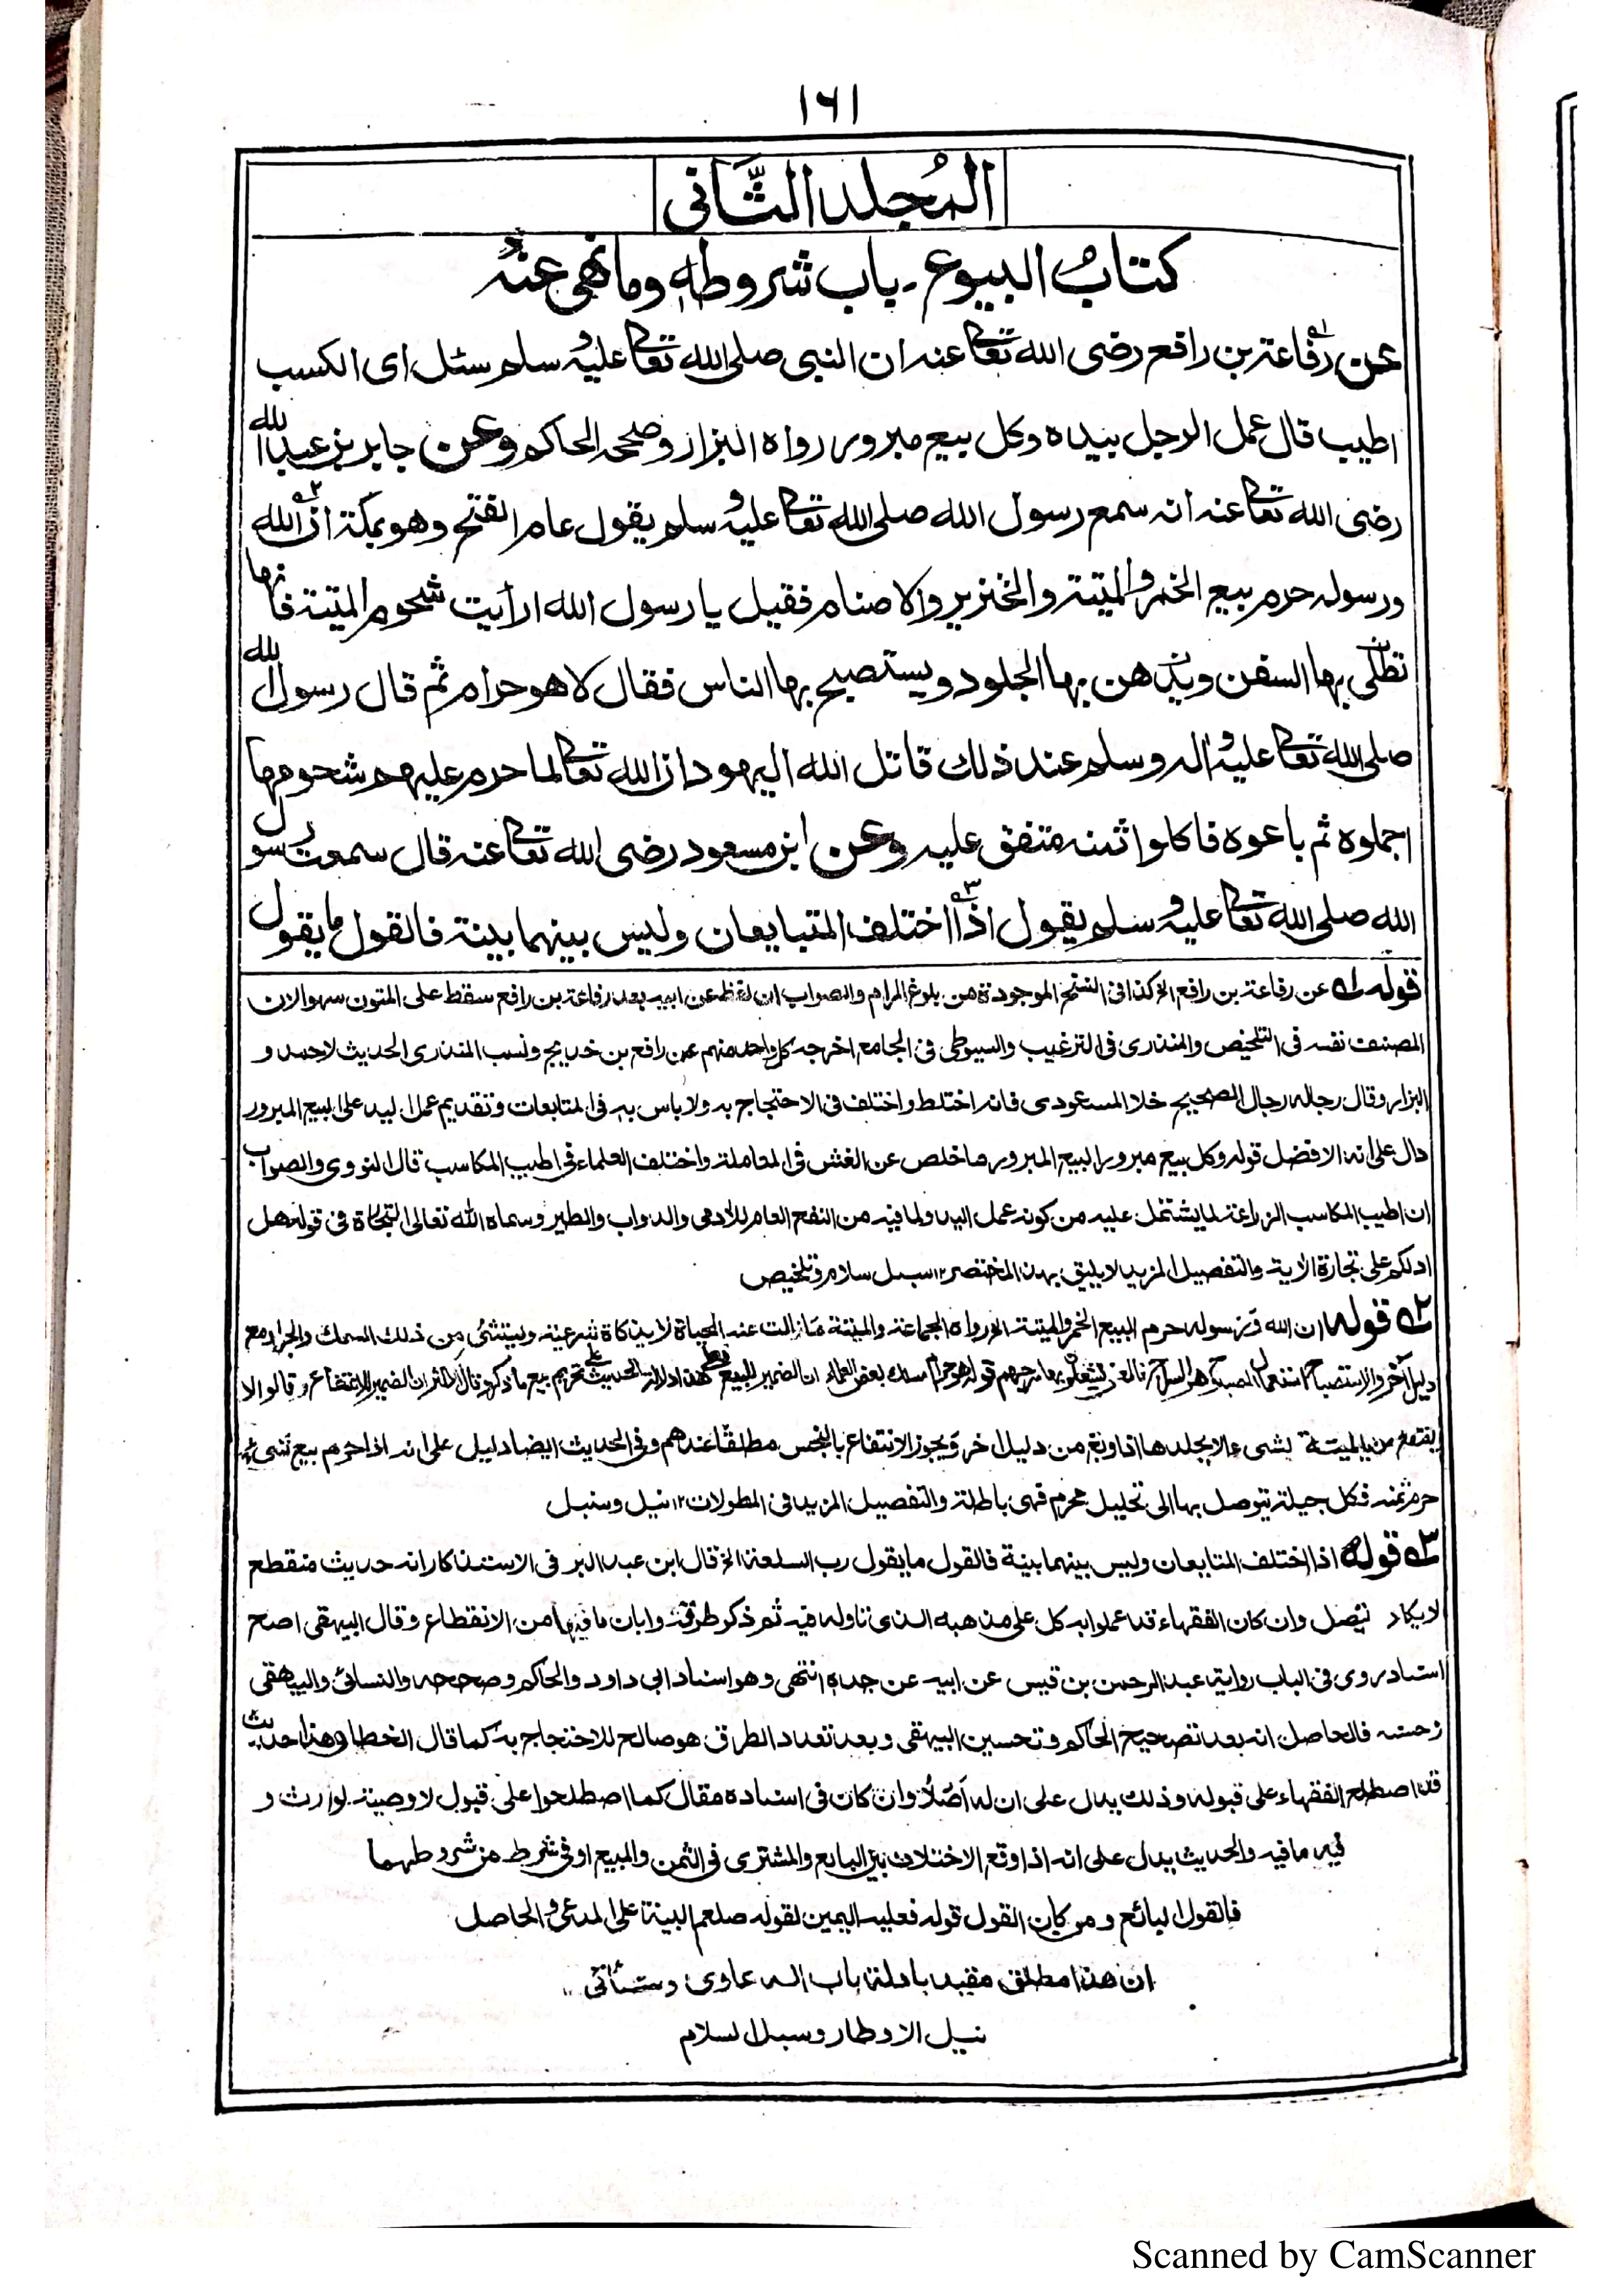 ١٦١
المُجلد الثَّانى
كتابُ البيوع ـ باب شروطهٖ وما نهى عنه
عن رفاعة بن رافع رضى الله تعالى عنه ان النبى صلى الله تعالى عليه وسلم سئل اى الكسب
اطيب قال عمل الرجل بيده وكل بيع مبرور رواه البزار وصححه الحاكم وعن جابر بن عبد الله
رضى الله تعالى عنه انه سمع رسول الله صلى الله تعالى عليه وسلم يقول عام الفتح وهو بمكة ان الله
ورسوله حرم بيع الخمر والميتة والخنزير والاصنام فقيل يا رسول الله ارأيت شحوم الميتة فانها
تطلى بها السفن ويدهن بها الجلود ويستصبح بها الناس فقال لا هو حرام ثم قال رسول الله
صلى الله تعالى عليه واله وسلم عند ذلك قاتل الله اليهود ان الله تعالى لما حرم عليهم شحومها
اجملوه ثم باعوه فاكلوا ثمنه متفق عليه وعن ابن مسعود رضى الله تعالى عنه قال سمعت رسول
الله صلى الله تعالى عليه وسلم يقول اذا اختلف المتبايعان وليس بينهما بينة فالقول ما يقول
قوله ١ عن رفاعة بن رافع الخ كذا فى النسخ الموجودة من بلوغ المرام والصواب ان لفظ عن ابيه بعد رفاعة بن رافع سقط على المتون سهوا لان
المصنف نفسه فى التلخيص والمنذرى فى الترغيب والسيوطى فى الجامع اخرجه كل واحد منهم عن رافع بن خديج ونسب المنذرى الحديث لاحمد و
البزار وقال رجاله رجال الصحيح خلا المسعودى فانه اختلط واختلف فى الاحتجاج به ولا باس به فى المتابعات وتقديم عمل اليد على البيع المبرور
دال على انه الافضل قوله وكل بيع مبرور البيع المبرور ما خلص عن الغش فى المعاملة واختلف العلماء فى اطيب المكاسب قال النووى والصواب
ان اطيب المكاسب الزراعة لما يشتمل عليه من كونه عمل اليد ولما فيه من النفع العام للادمى والدواب والطير وسماه الله تعالى التجارة فى قوله هل
ادلكم على تجارة الاية والتفصيل المزيد لا يليق بهذا المختصر ١٢ سبل سلام وتلخيص
٢ قوله ان الله ورسوله حرم البيع الخمر والميتة الخ رواه الجماعة والميتة ما زالت عنه الحياة لا بذكاة شرعية ويستثنى من ذلك السمك والجراد مع
دليل آخر والاستصباح استعمال المصباح وهو السراج قوله هو حرام بعض العلماء ان الضمير للبيع تحريم بيع ما ذكر وقال الاكثر ان الضمير للانتفاع وقالوا لا
ينتفع من الميتة بشىء الا بجلدها اذا دبغ من دليل اخر ويجوز الانتفاع بالنجس مطلقا عندهم وفى الحديث ايضا دليل على انه اذا حرم بيع شىء
حرم ثمنه فكل حيلة يتوصل بها الى تحليل محرم فهى باطلة والتفصيل المزيد فى المطولات ١٢ نيل وسبل
٣ قوله اذا اختلف المتبايعان وليس بينهما بينة فالقول ما يقول رب السلعة الخ قال ابن عبد البر فى الاستذكار انه حديث منقطع
لا يكاد يتصل وان كان الفقهاء قد عملوا به كل على مذهبه الذى تاوله فيه ثم ذكر طرقه وابان ما فيها من الانقطاع وقال البيهقى اصح
اسناد روى فى الباب رواية عبد الرحمن بن قيس عن ابيه عن جده انتهى وهو اسناد ابى داود والحاكم وصححه والنسائى والبيهقى
وحسنه فالحاصل انه بعد تصحيح الحاكم وتحسين البيهقى وبعد تعداد الطرق هو صالح للاحتجاج به كما قال الخطابى هذا حديث
قد اصطلح الفقهاء على قبوله وذلك يدل على ان له اصلا وان كان فى اسناده مقال كما اصطلحوا على قبول لا وصية لوارث و
فيه ما فيه والحديث يدل على انه اذا وقع الاختلاف بين البايع والمشترى فى الثمن والمبيع او فى شرط من شروطهما
فالقول البائع ومن كان القول قوله فعليه اليمين لقوله صلعم البينة على المدعى والحاصل
ان هذا مطلق مقيد بادلة باب الدعاوى وستأتى
نيل الاوطار وسبل السلام
Scanned by CamScanner